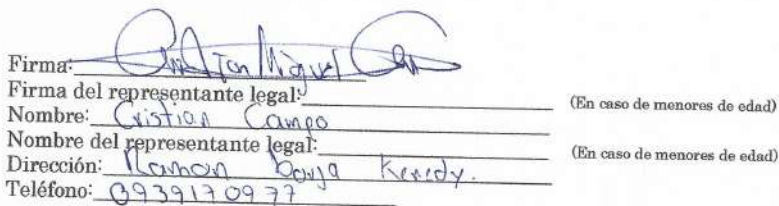 Firma: Cristian Miguel Cam
Firma del representante legal: (En caso de menores de edad)
Nombre: Cristian Campo
Nombre del representante legal: (En caso de menores de edad)
Dirección: Ramon Borja Kenedy.
Teléfono: 0939170977